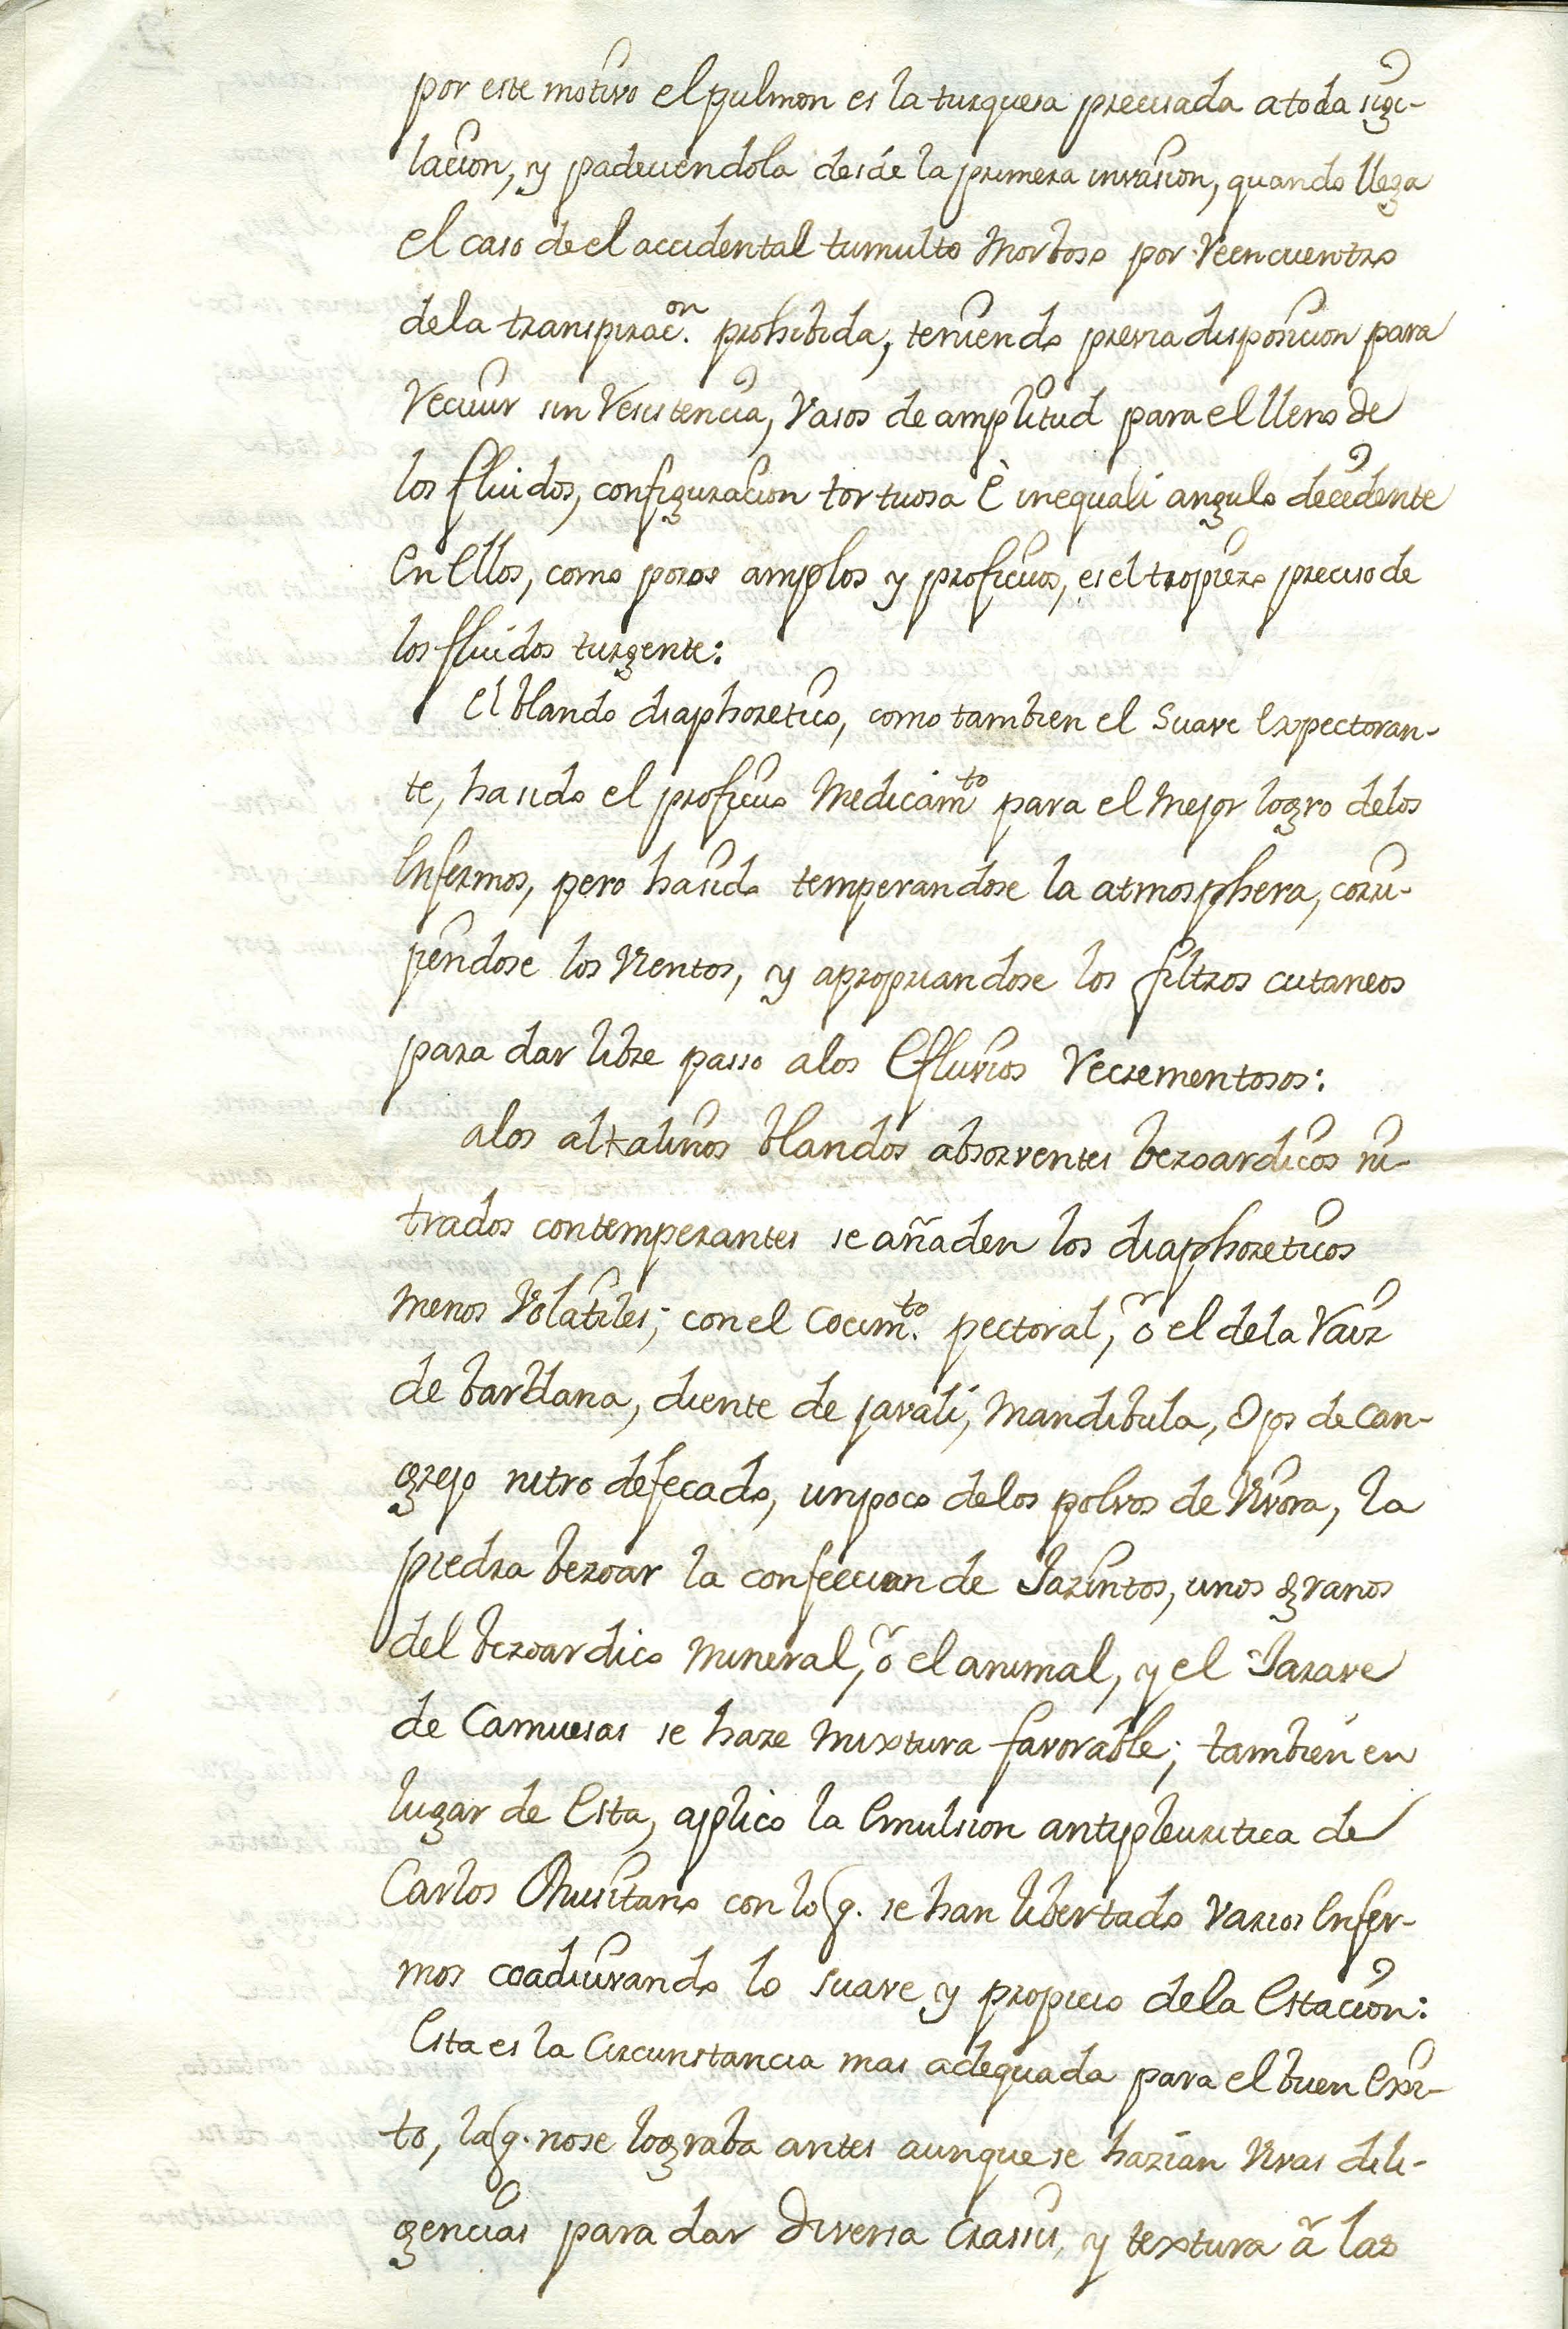 por este motivo el pulmon es la turquesa precisada a toda sugi-
lacion, y padeciendola desde la primera invasion, quando llega
el caso de el accidental tumulto Morboso por Reencuentro
dela transpirac.on prohibida, teniendo previa disposicion para
Recivir sin Resistencia, Vasos de amplitud para el lleno de
los fluidos, configuracion tortuosa è inequali angulo decidente
en ellos, como poros amplos y proficuos, es el tropiezo preciso de
los fluidos turgente:
el blando diaphoretico, como tambien el Suave expectoran-
te, ha sido el proficuo Medicam.to para el Mejor logro delos
enfermos, pero ha sido temperandose la atmosphera, corri-
jiendose los Vientos, y apropiandose los filtros cutaneos
para dar libre passo alos efluvios Recrementosos:
alos alkalinos blandos absorventes bezoardicos ni-
trados contemperantes se añaden los diaphoreticos
Menos Volatiles; con el Cocim.to pectoral, ò el dela Raiz
de bardana, diente de javali, Mandibula, Ojos de Can-
grejo nitro defecado, un poco delos polvos de Vivora, la
piedra bezoar la confeccion de Jazintos, unos granos
del bezoardico Mineral, ò el animal, y el Jarave
de Camuesas se haze Mixtura favorable; tambien en
lugar de esta, aplico la emulsion antipleuritica de
Carlos Musitano con lo q. se han libertado Varios enfer-
mos coadiuvando lo suave y propicio dela estacion:
esta es la Circunstancia mas adequada para el buen exi-
to, la q. no se lograba antes aunque se hazian Vivas dili-
gencias para dar diversa Crassis, y textura à las